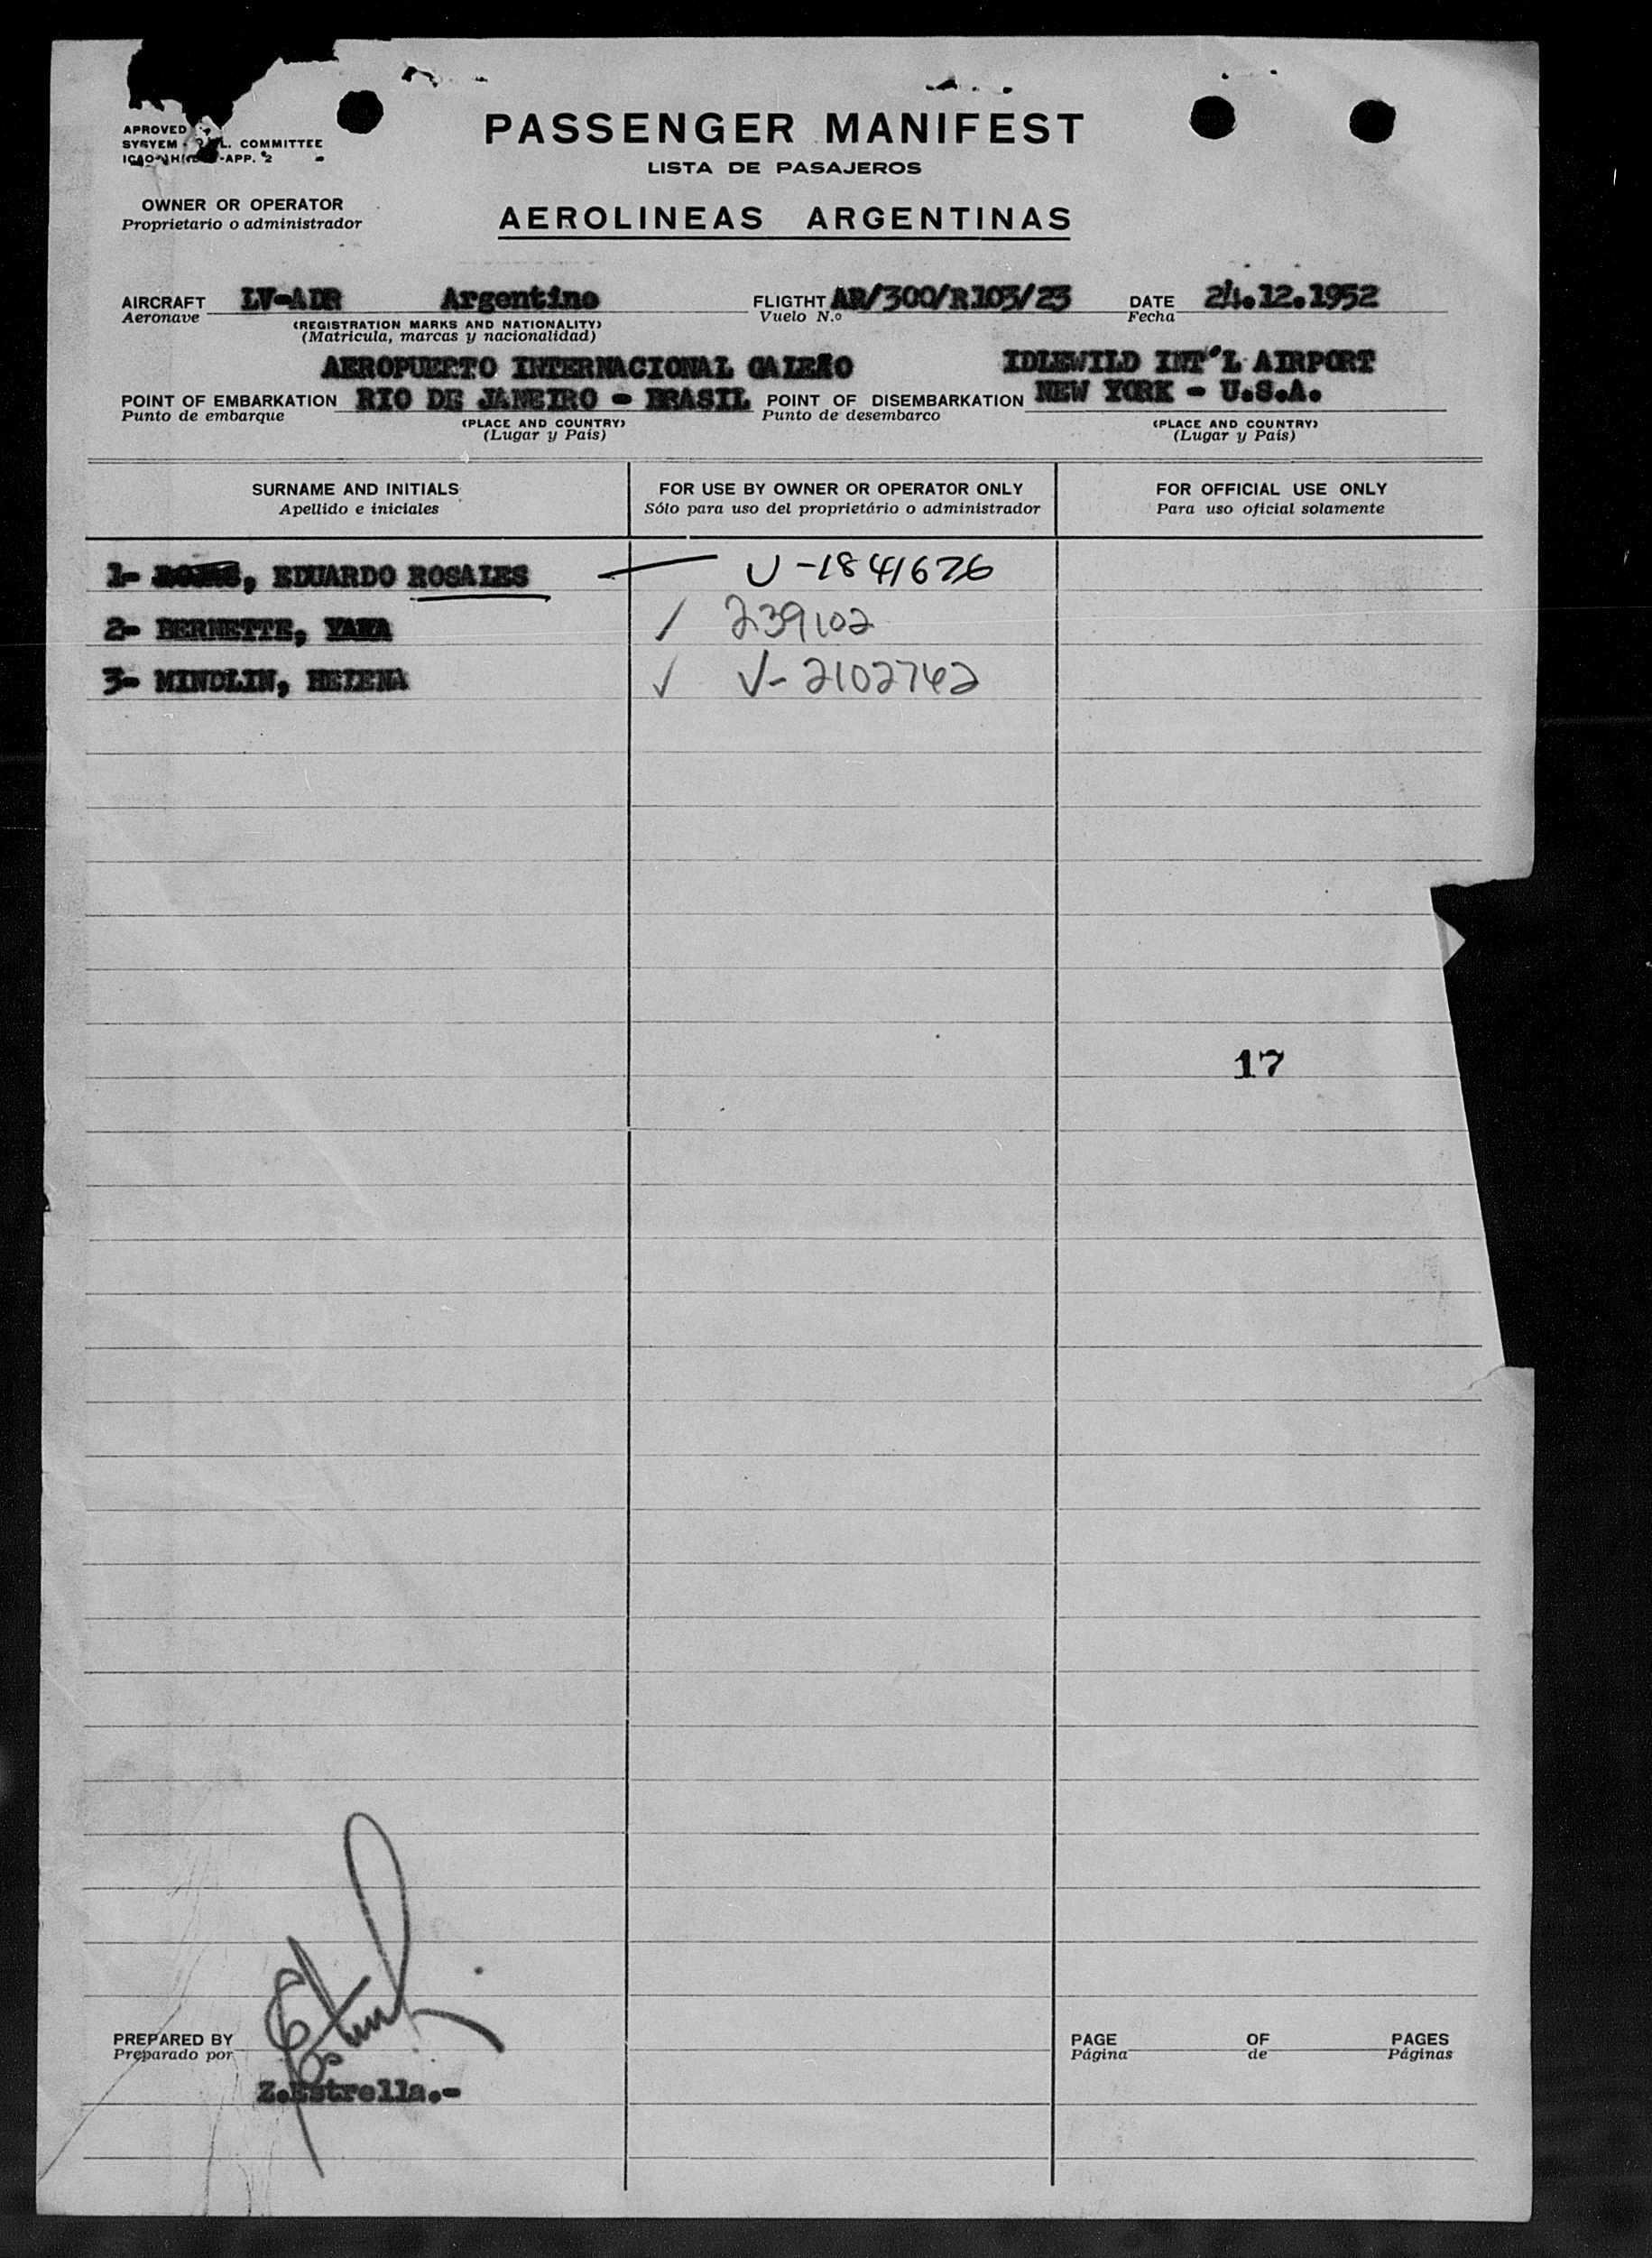 PASSENGER MANIFEST
LISTA DE PASAJEROS
APROVED
SYSYEM L. COMMITTEE
-APP. 2
OWNER OR OPERATOR
Proprietario o administrador
AEROLINEAS ARGENTINAS
AIRCRAFT LV-ADR Argentino FLIGTHT AR/300/R103/23 DATE 24.12.1952
Aeronave Vuelo N.º Fecha
(REGISTRATION MARKS AND NATIONALITY)
(Matricula, marcas y nacionalidad)
AEROPUERTO INTERNACIONAL GALEÃO IDLEWILD INT'L AIRPORT
POINT OF EMBARKATION RIO DE JANEIRO - BRASIL POINT OF DISEMBARKATION NEW YORK - U.S.A.
Punto de embarque Punto de desembarco
(PLACE AND COUNTRY) (PLACE AND COUNTRY)
(Lugar y País) (Lugar y País)
SURNAME AND INITIALS FOR USE BY OWNER OR OPERATOR ONLY FOR OFFICIAL USE ONLY
Apellido e iniciales Sólo para uso del proprietário o administrador Para uso oficial solamente
1- , EDUARDO ROSALES U-1841676
2- BERNETTE, YARA 239102
3- MINDLIN, HELENA V-2102742
17
PREPARED BY PAGE OF PAGES
Preparado por Página de Páginas
Z.Estrella.-